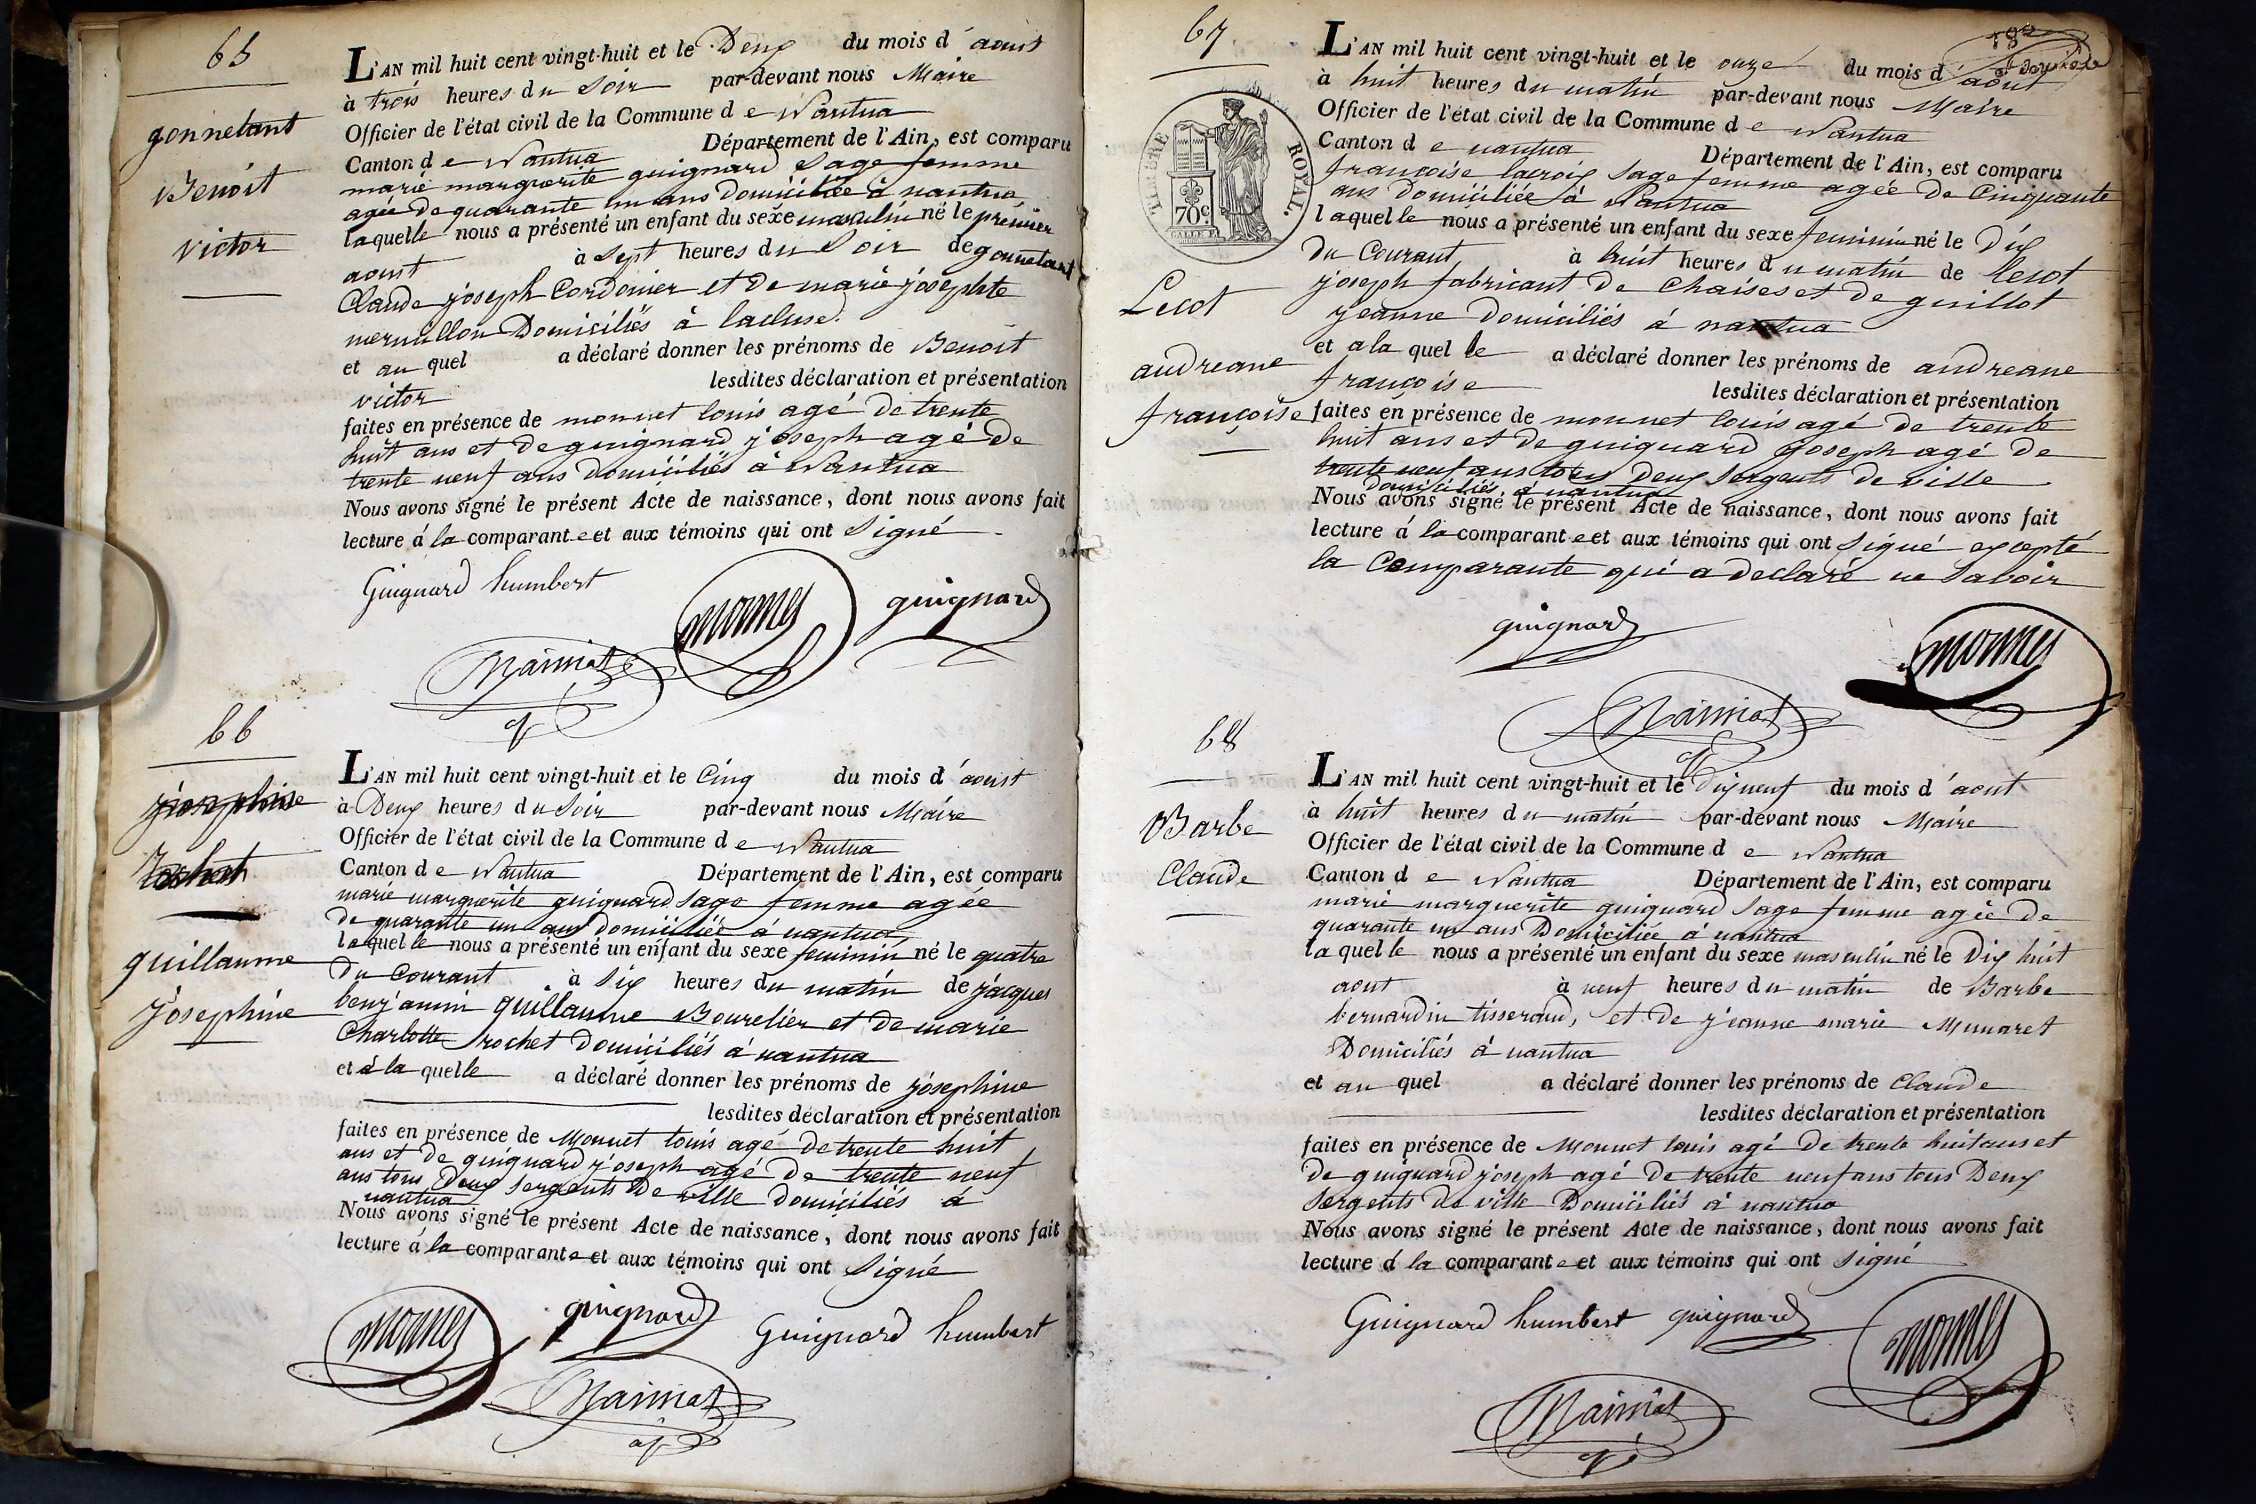 65
gonnetant
Benoit
victor
L'AN mil huit cent vingt-huit et le Deux du mois d'aoust
à trois heures du Soir par-devant nous Maire
Officier de l'état civil de la Commune de Nantua
Canton de Nantua Département de l'Ain, est comparu
marie marguerite guignard Sage femme
agée de quarante un ans Domiciliée à nantua
laquelle nous a présenté un enfant du sexe masculin né le premier
aoust à Sept heures du Soir de gonnetant
Claude joseph Cordonier et de marie josephte
mermillon Domiciliés à lacluse.
et au quel a déclaré donner les prénoms de Benoit
victor lesdites déclaration et présentation
faites en présence de monnet louis agé de trente
huit ans et de guignard joseph agé de
trente neuf ans domiciliés à Nantua
Nous avons signé le présent Acte de naissance, dont nous avons fait
lecture à la comparante et aux témoins qui ont Signé
Guignard humbert
monnet
guignard
66
guillaume
josephine
L'AN mil huit cent vingt-huit et le Cinq du mois d'aoust
à Deux heures du Soir par-devant nous Maire
Officier de l'état civil de la Commune de Nantua
Canton de Nantua Département de l'Ain, est comparu
marie marguerite guignard Sage femme agée
de quarante un ans domiciliée à nantua
laquelle nous a présenté un enfant du sexe feminin né le quatre
du Courant à Six heures du matin de jacques
benjamin guillaume Bourelier et de marie
Charlotte rochet domiciliés à nantua
et à la quelle a déclaré donner les prénoms de josephine
lesdites déclaration et présentation
faites en présence de Monnet louis agé de trente huit
ans et de guignard joseph agé de trente neuf
ans tous Deux Sergents de ville domiciliés à
nantua
Nous avons signé le présent Acte de naissance, dont nous avons fait
lecture à la comparante et aux témoins qui ont Signé
monnet
guignard
Guignard humbert
67
TIMBRE ROYAL.
70c.
Lecot
andreane
françoise
L'AN mil huit cent vingt-huit et le onze du mois d'aout
à huit heures du matin par-devant nous Maire
Officier de l'état civil de la Commune de Nantua
Canton de nantua Département de l'Ain, est comparu
françoise lacroix Sage femme agée de Cinquante
ans domiciliée à Nantua
laquelle nous a présenté un enfant du sexe feminin né le Dix
du Courant à huit heures du matin de lecot
joseph fabricant de Chaises et de guillot
jeanne domiciliés à nantua
et a la quel le a déclaré donner les prénoms de andreane
françoise lesdites déclaration et présentation
faites en présence de monnet louis agé de trente
huit ans et de guignard joseph agé de
trente neuf ans tous deux Sergents de ville
domiciliés à nantua
Nous avons signé le présent Acte de naissance, dont nous avons fait
lecture à la comparante et aux témoins qui ont Signé excepté
la Comparante qui a declaré ne Savoir
guignard
monnet
68
Barbe
Claude
L'AN mil huit cent vingt-huit et le dixneuf du mois d'aout
à huit heures du matin par-devant nous Maire
Officier de l'état civil de la Commune de Nantua
Canton de Nantua Département de l'Ain, est comparu
marie marguerite guignard Sage femme agée de
quarante un ans Domiciliée à nantua
la quel le nous a présenté un enfant du sexe masculin né le Dix huit
aout à neuf heures du matin de Barbe
bernardin tisserand, et de jeanne marie Munaret
Domiciliés à nantua
et au quel a déclaré donner les prénoms de Claude
lesdites déclaration et présentation
faites en présence de Monnet louis agé de trente huit ans et
de guignard joseph agé de trente neuf ans tous Deux
Sergents de ville Domiciliés à nantua
Nous avons signé le présent Acte de naissance, dont nous avons fait
lecture à la comparante et aux témoins qui ont Signé
Guignard humbert guignard
monnet